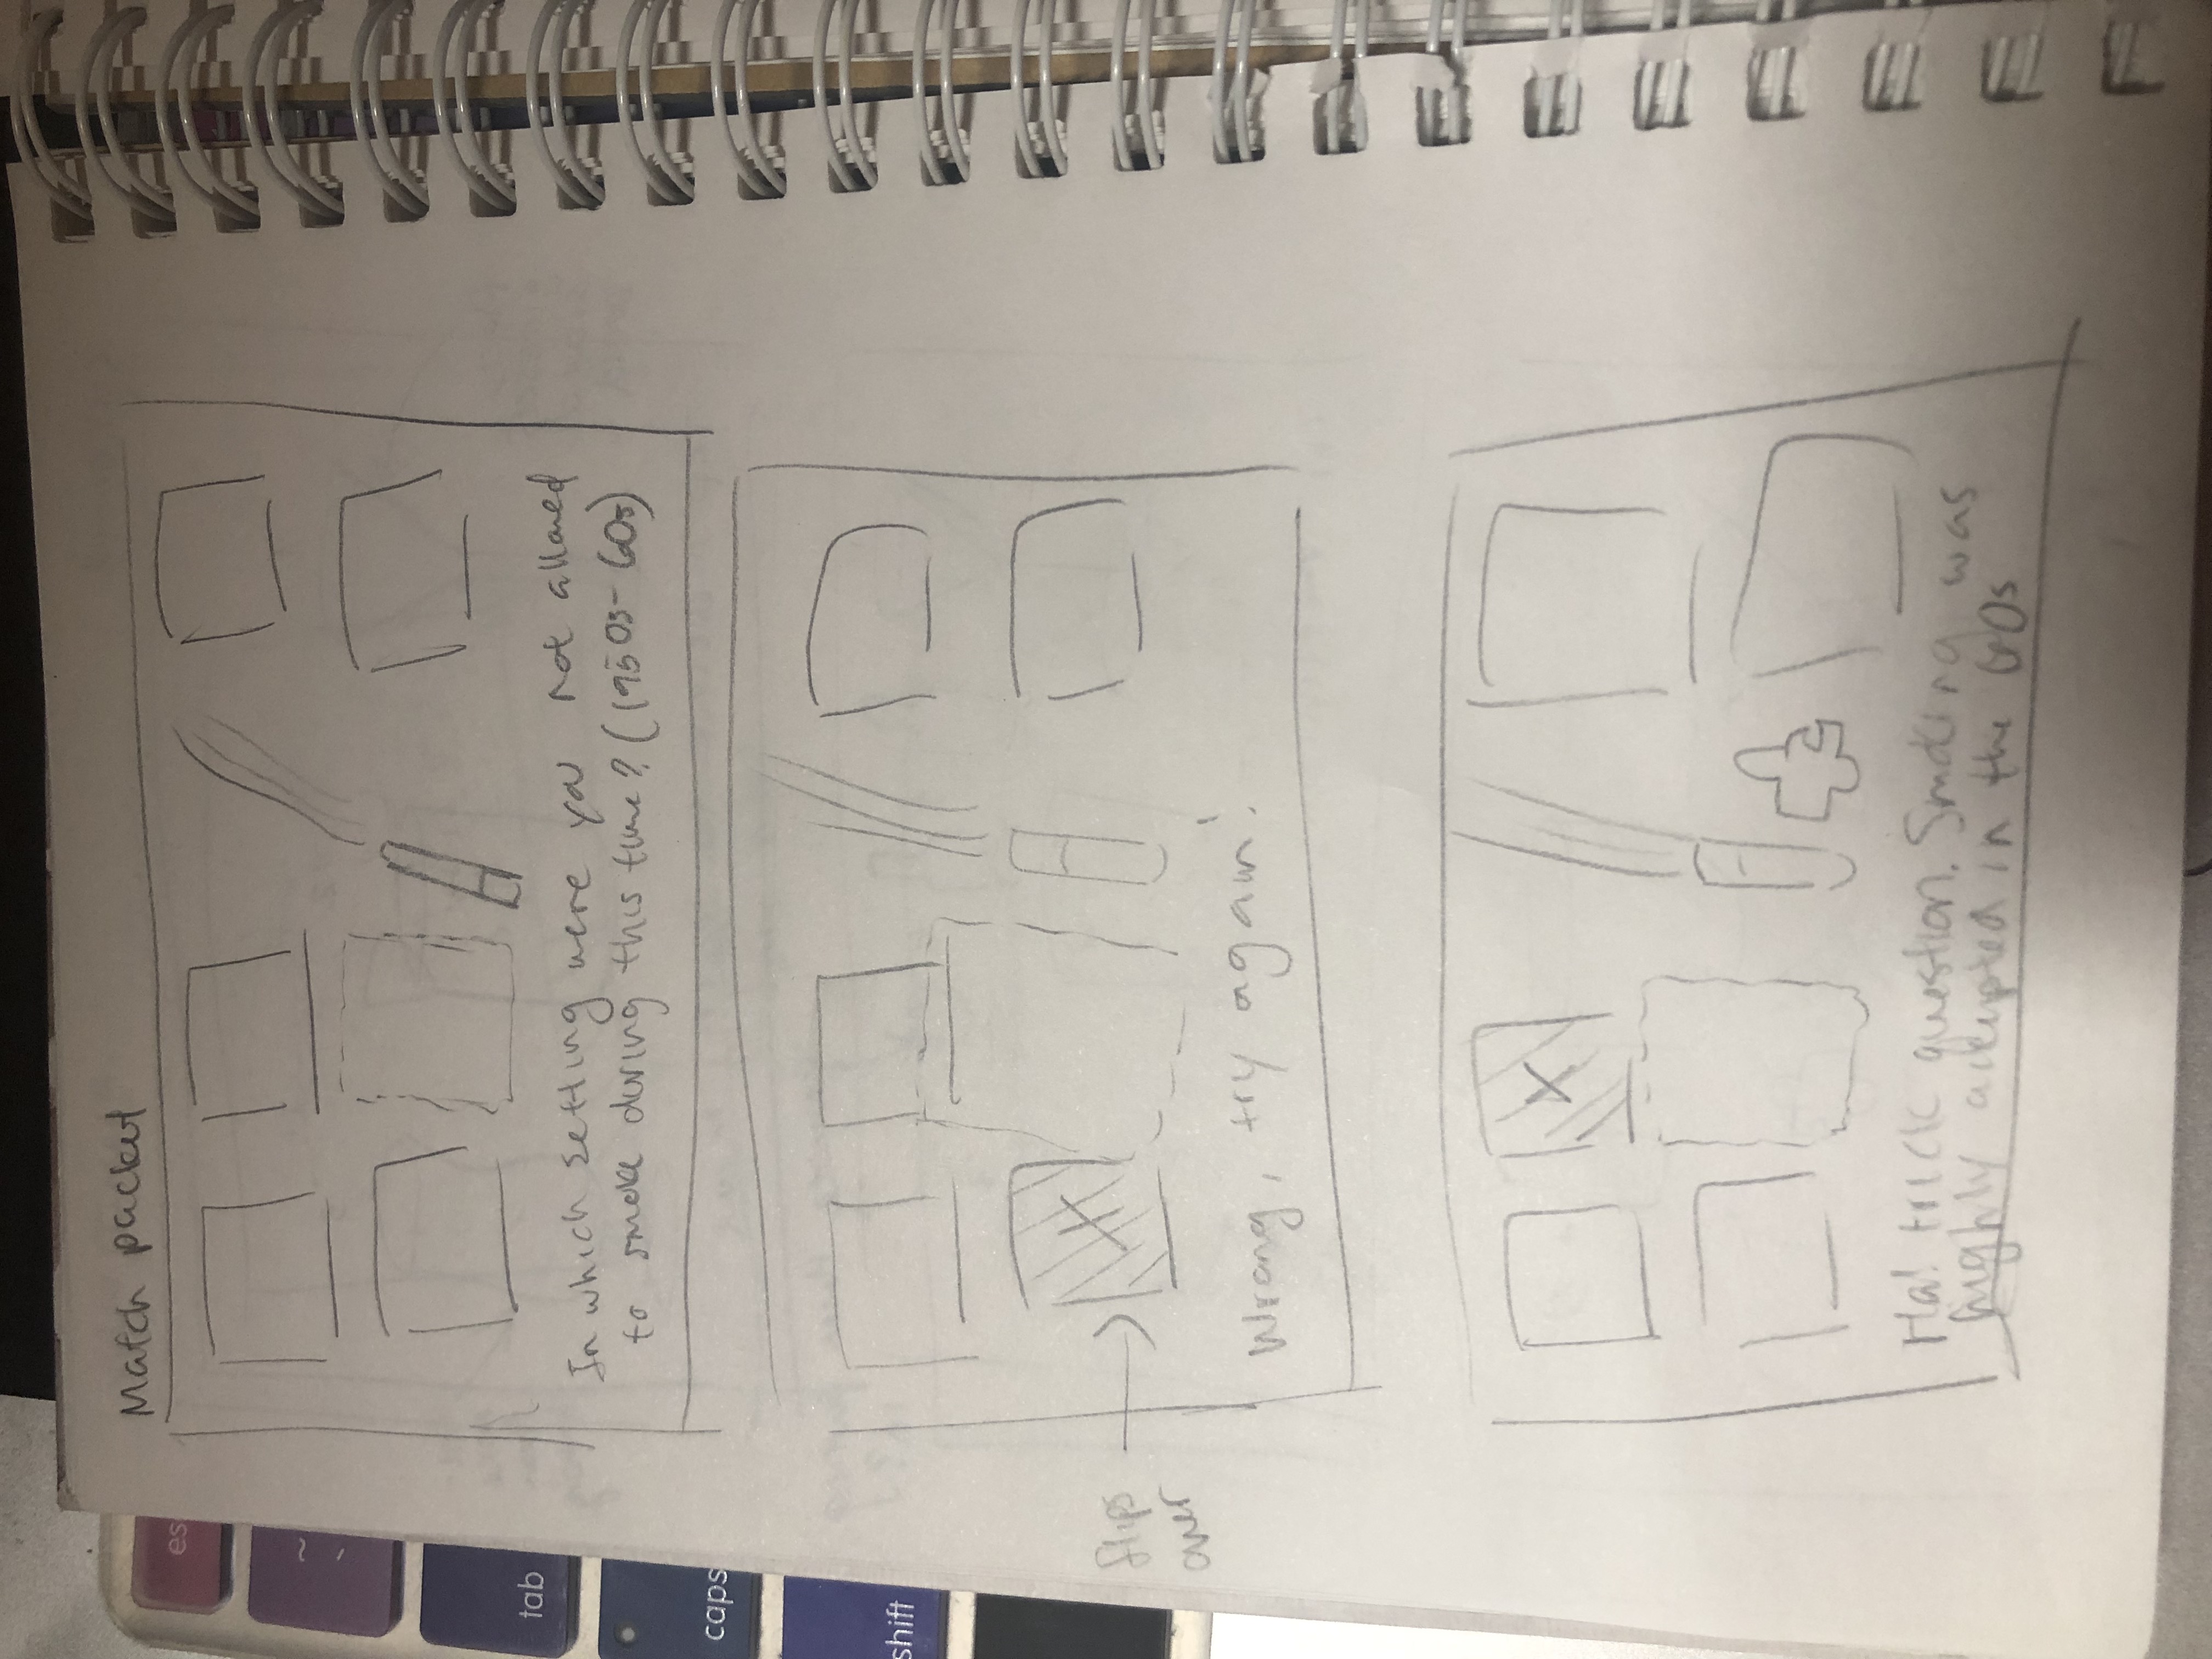 Match packet
In which setting were you not allowed
to smoke during this time? (1950s-60s)
flips
over
Wrong, try again!
Ha! trick question. Smoking was
highly accepted in the 60s
es
~
tab
caps
shift